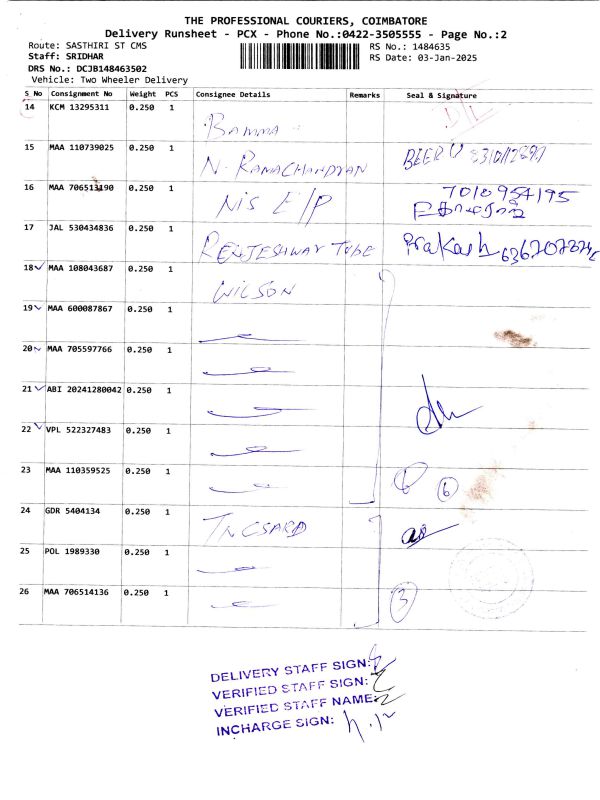 THE PROFESSIONAL COURIERS, COIMBATORE
Delivery Runsheet - PCX - Phone No.:0422-3505555 - Page No.:2
Route: SASTHIRI ST CMS
RS No.: 1484635
Staff: SRIDHAR
RS Date: 03-Jan-2025
DRS No.: DCJB148463502
Vehicle: Two Wheeler Delivery
S No Consignment No Weight PCS Consignee Details Remarks Seal & Signature
14 KCM 13295311 0.250 1
Bamma
15 MAA 110739025 0.250 1
N. RAMACHANDRAN
16 MAA 706513190 0.250 1
NIS E/P 7010954195
17 JAL 530434836 0.250 1
TUBE Prakash
18 MAA 108043687 0.250 1
WILSON
19 MAA 600087867 0.250 1
20 MAA 705597766 0.250 1
21 ABI 20241280042 0.250 1
22 VPL 522327483 0.250 1
23 MAA 110359525 0.250 1
6
24 GDR 5404134 0.250 1
25 POL 1989330 0.250 1
26 MAA 706514136 0.250 1
3
DELIVERY STAFF SIGN:
VERIFIED STAFF SIGN:
VERIFIED STAFF NAME:
INCHARGE SIGN: